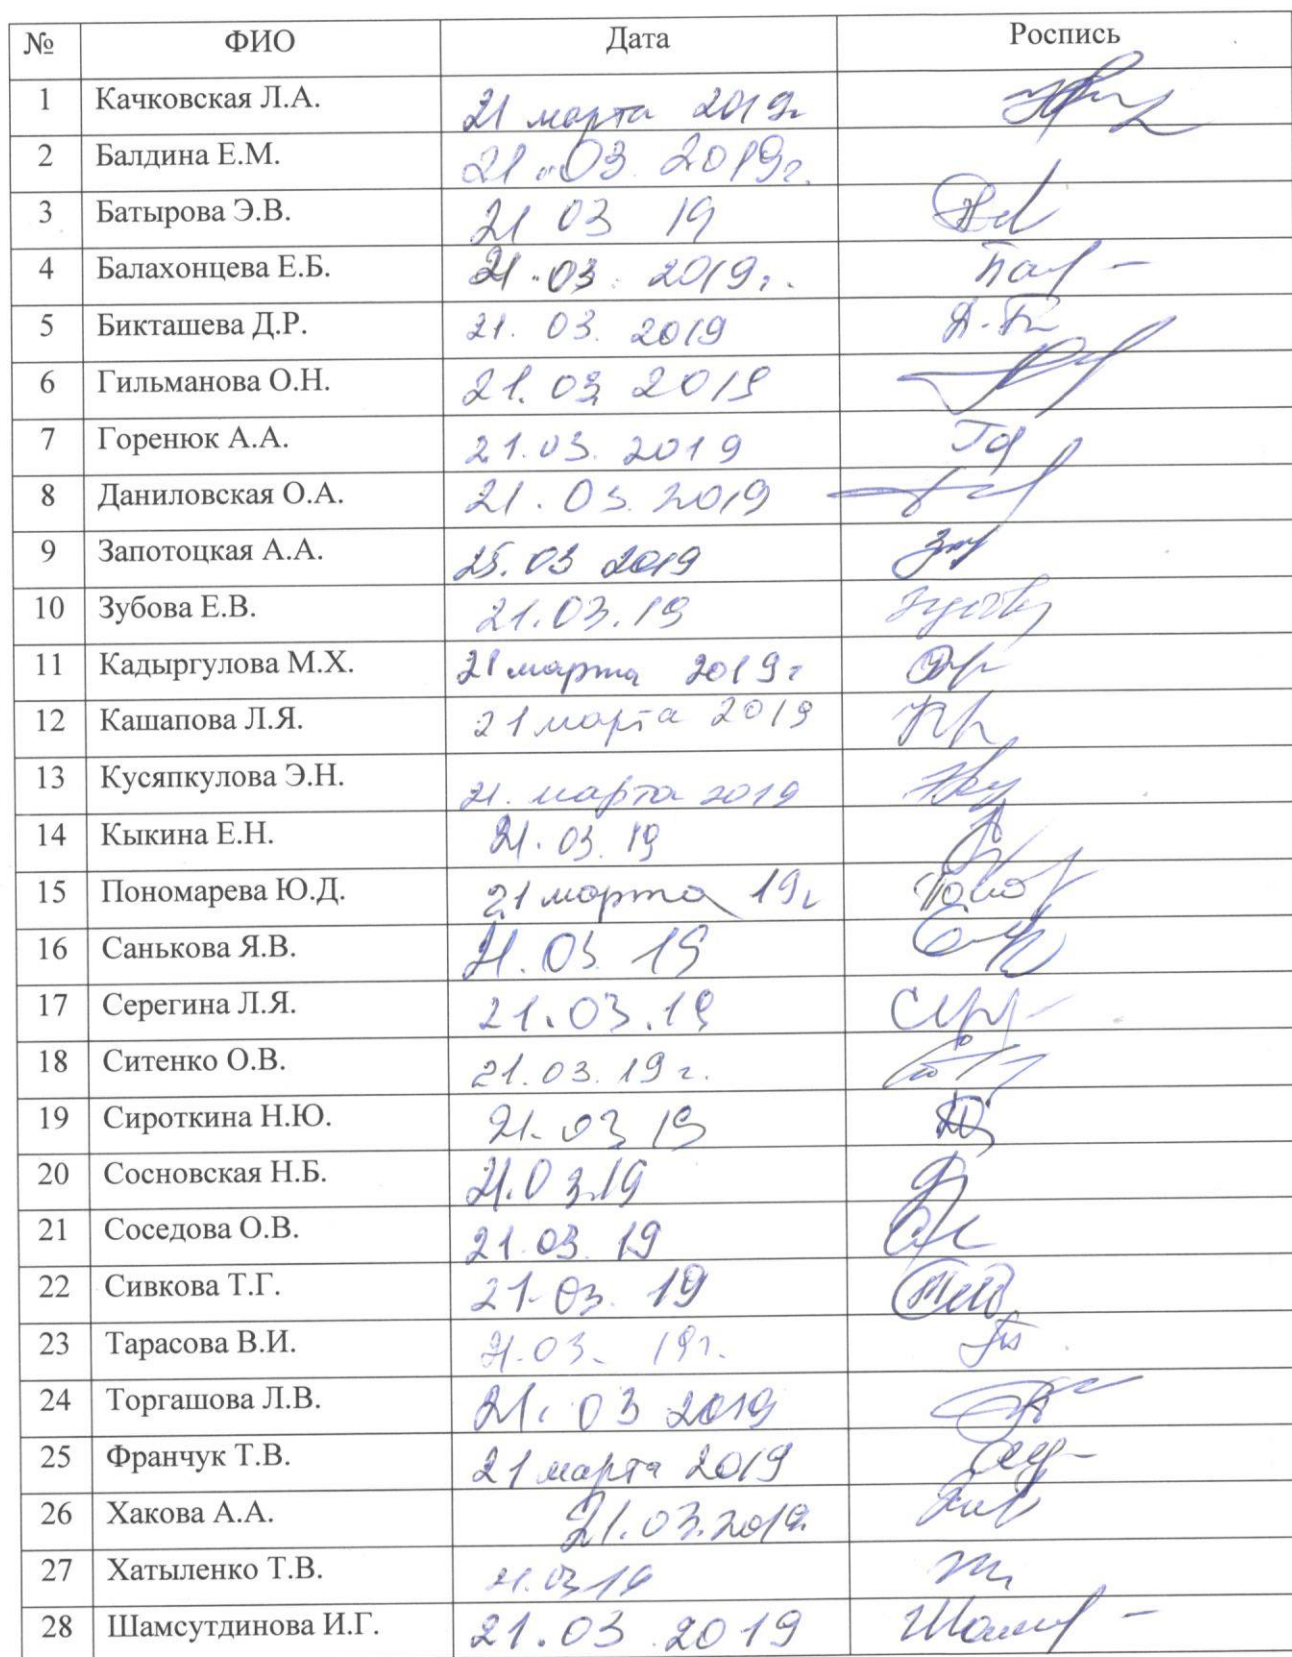 № ФИО Дата Роспись
1 Качковская Л.А. 21 марта 2019г
2 Балдина Е.М. 21.03.2019г.
3 Батырова Э.В. 21 03 19
4 Балахонцева Е.Б. 21.03.2019г.
5 Бикташева Д.Р. 21.03.2019
6 Гильманова О.Н. 21.03 2019
7 Горенюк А.А. 21.03.2019
8 Даниловская О.А. 21.03.2019
9 Запотоцкая А.А. 25.03 2019
10 Зубова Е.В. 21.03.19
11 Кадыргулова М.Х. 21 марта 2019г
12 Кашапова Л.Я. 21 марта 2019
13 Кусяпкулова Э.Н. 21. марта 2019
14 Кыкина Е.Н. 21.03.19
15 Пономарева Ю.Д. 21 марта 19г
16 Санькова Я.В. 21.03 19
17 Серегина Л.Я. 21.03.19
18 Ситенко О.В. 21.03.19 г.
19 Сироткина Н.Ю. 21.03 19
20 Сосновская Н.Б. 21.03.19
21 Соседова О.В. 21.03.19
22 Сивкова Т.Г. 21.03.19
23 Тарасова В.И. 21.03. 19г.
24 Торгашова Л.В. 21.03 2019
25 Франчук Т.В. 21 марта 2019
26 Хакова А.А. 21.03.2019
27 Хатыленко Т.В. 21.03.19
28 Шамсутдинова И.Г. 21.03.2019